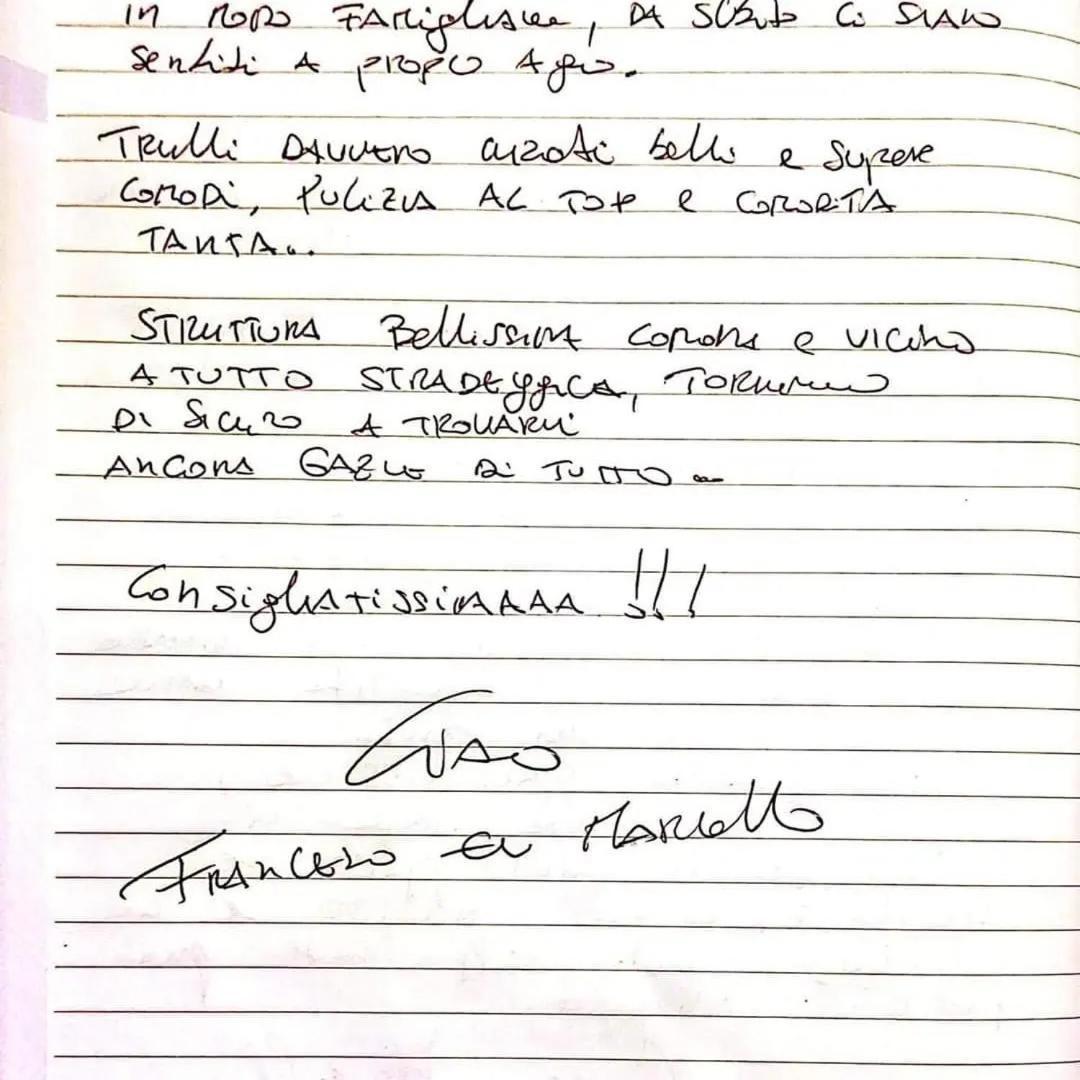 in modo Famigliare, DA SUBito Ci SIAMO
Sentiti A proprio Agio.
TRulli DAVVERO curati belli e Supere
COMODi, PULiZIA AL TOP e COMODITA
TANTA...
STRUTTURA BelliSSima COMODA e VICINO
A TUTTO STRADEggICA, TORNEREMO
Di SiCURO A TROVARVi
ANCORA GAZIE Di TUTTO...
ConsigliATiSSiMAAAA !!!
CIAO
FRANCESCO Marcello